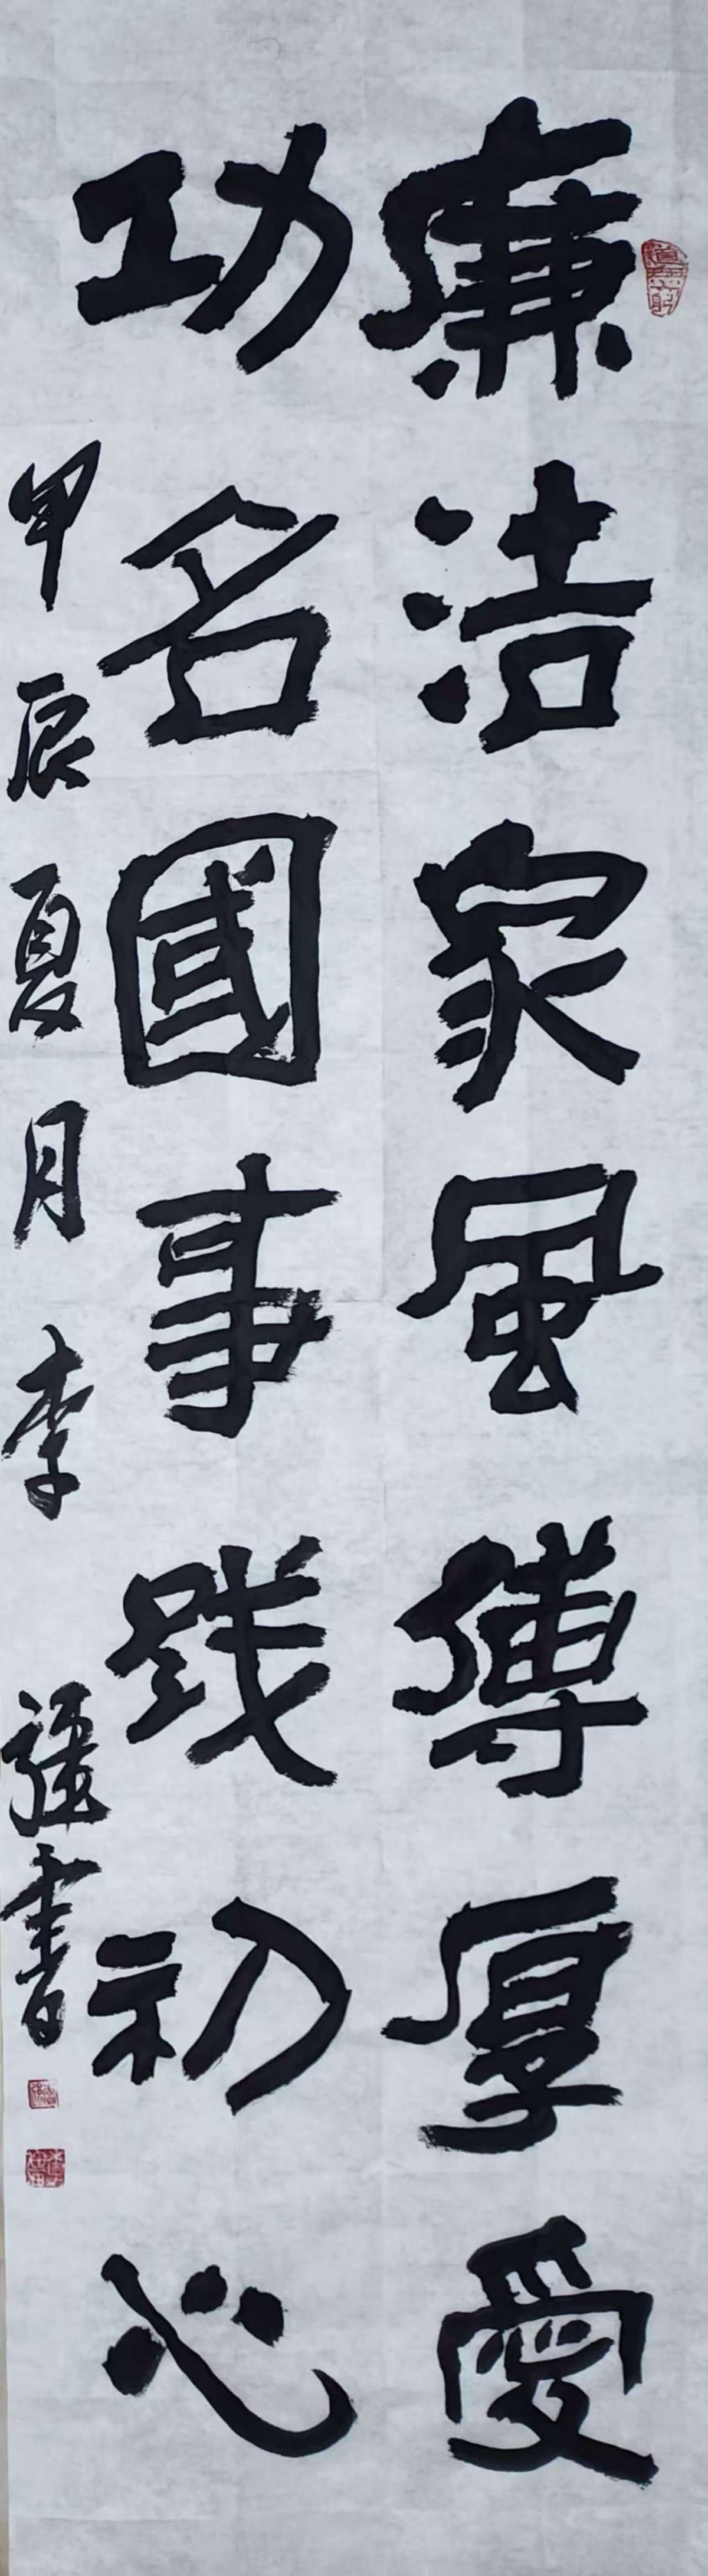 廉洁家風傳厚愛
功名國事践初心
甲辰夏月李強書